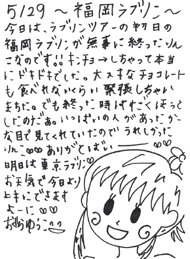 5/29 〜福岡ラブリン〜
今日は、ラブリンツアーの初日の
福岡ラブリンが無事に終ったりん
こなのです!!キンチョーしちゃって本当
にドキドキでした。大スキなチョコレート
も食べれないくらい緊張しちゃい
ました。でも終った時はすごくほっと
したのだぁ。いっぱいの人があったか〜
な目で見てくれていたのでうれしかった
りん♡♡ありがとばぃ〜
明日は東京ラブリン♡
お天気で今日より
上手にできます
よーに♡